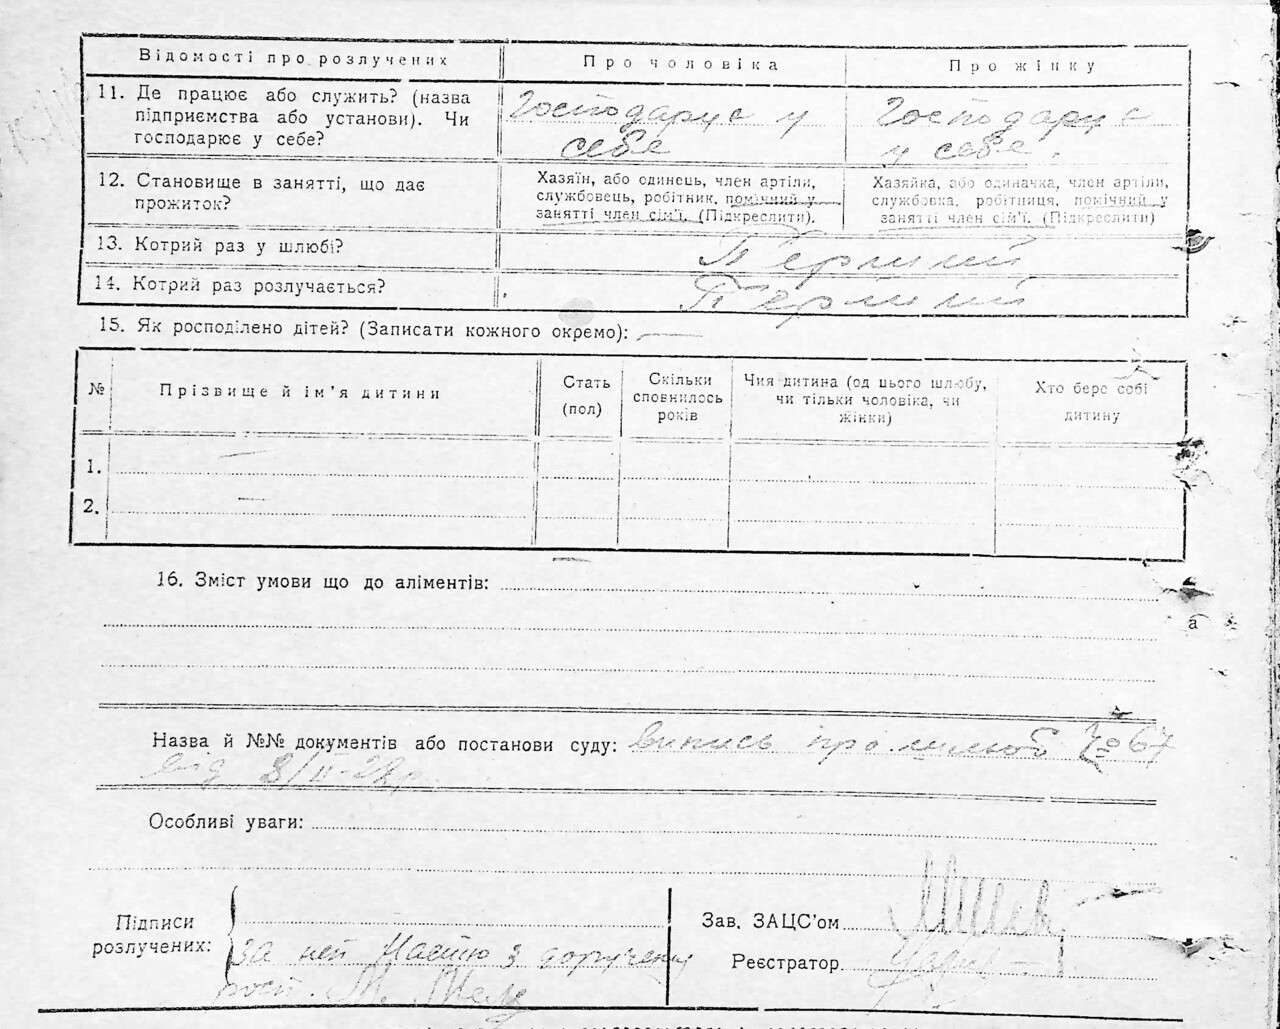 Відомості про розлучених
Про чоловіка
Про жінку
11. Де працює або служить? (назва
підприємства або установи). Чи
господарює у себе?
Господарує у
себе
Господарує
у себе.
12. Становище в занятті, що дає
прожиток?
Хазяїн, або одинець, член артіли,
службовець, робітник, помічний у
занятті член сім'ї. (Підкреслити).
Хазяйка, або одиначка, член артіли,
службовка, робітниця, помічний у
занятті член сім'ї. (Підкреслити)
13. Котрий раз у шлюбі?
Первший
14. Котрий раз розлучається?
Первший
15. Як росподілено дітей? (Записати кожного окремо): —
№
Прізвище й ім'я дитини
Стать
(пол)
Скільки
сповнилось
років
Чия дитина (од цього шлюбу,
чи тільки чоловіка, чи
жінки)
Хто бере собі
дитину
1. —
2. —
16. Зміст умови що до аліментів:
а
Назва й №№ документів або постанови суду: випись про шлюб № 67
від 8/II-28р.
Особливі уваги:
Підписи
розлучених:
за неї Настю з доручення
Зав. ЗАЦС'ом
Реєстратор